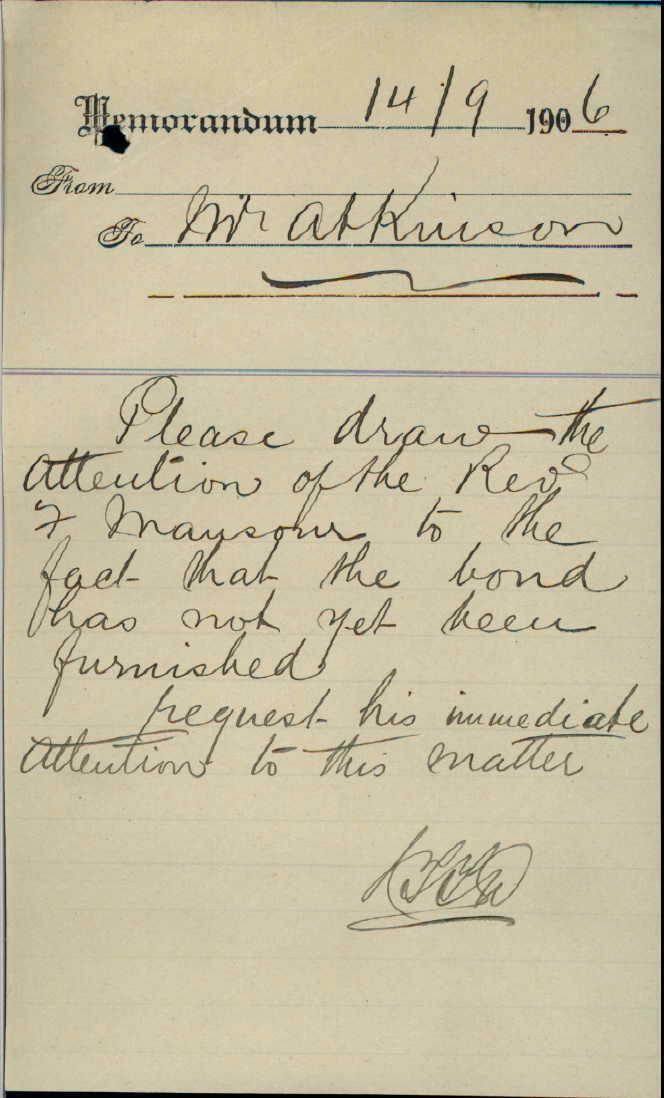 Memorandum 14/9 1906
From
To Mr Atkinson
Please draw the
Attention of the Revd
F Mansour to the
fact that the bond
has not yet been
furnished
request his immediate
Attention to this matter